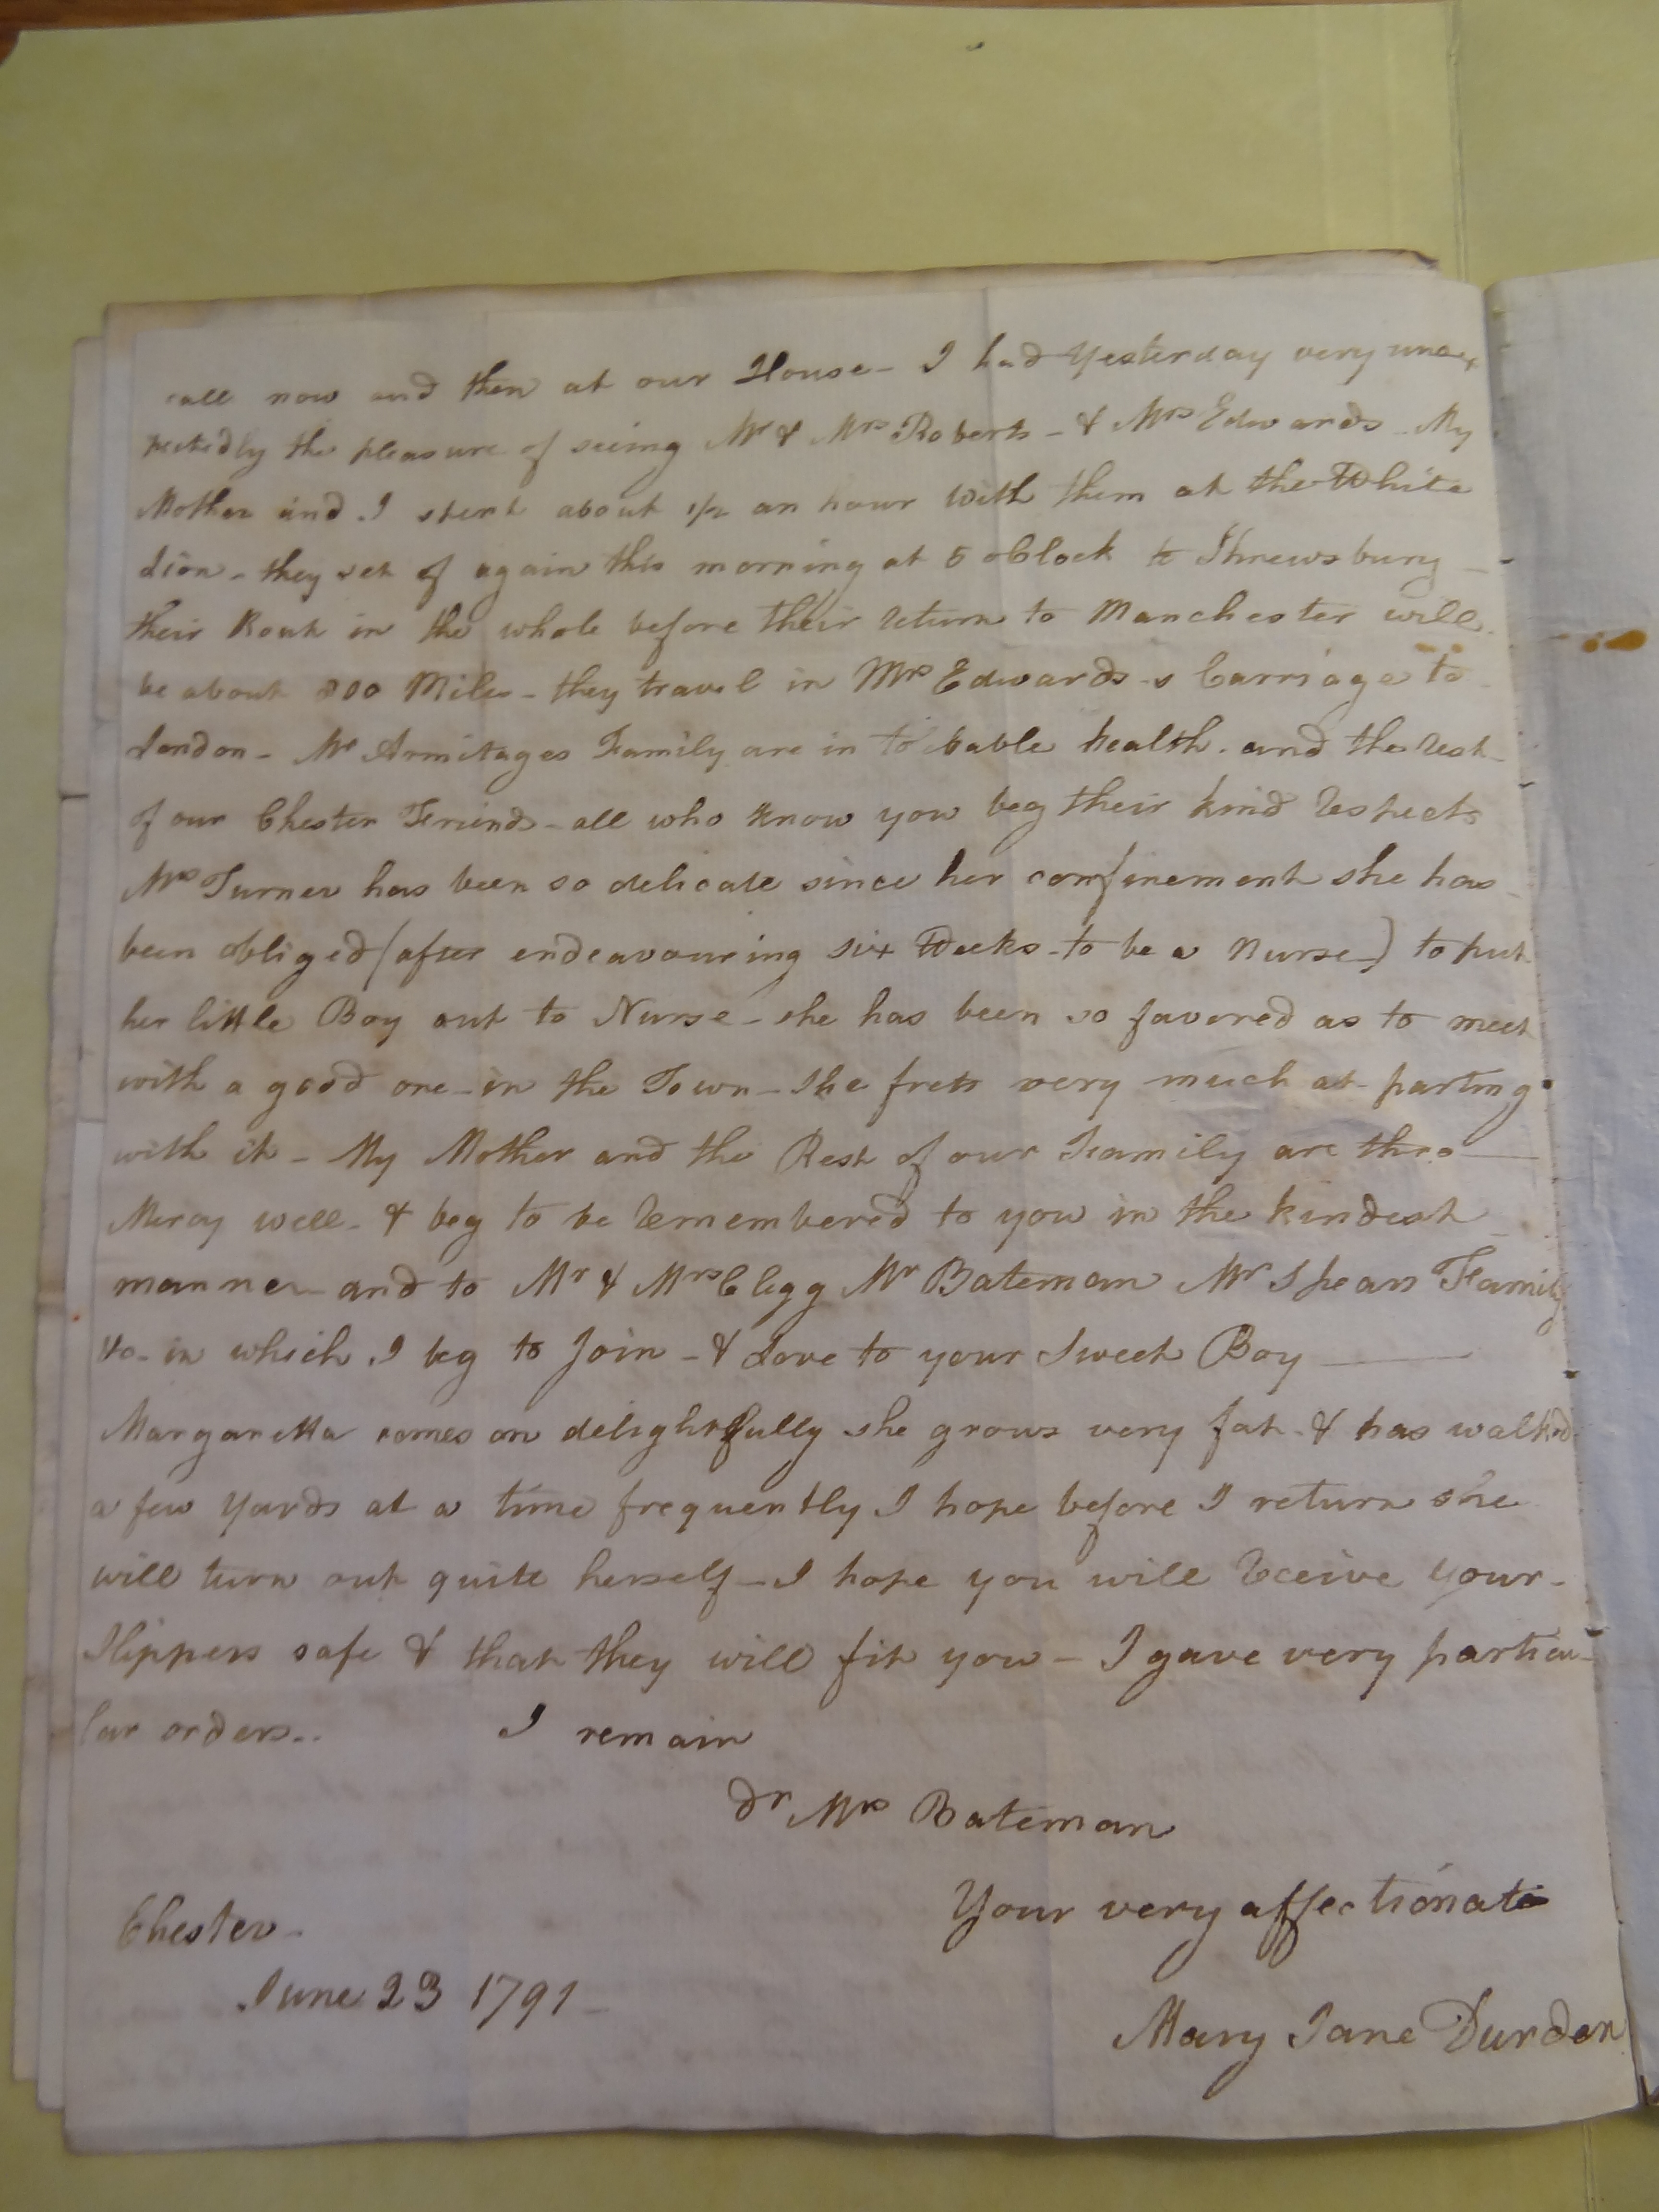 call now and then at our House - I had Yesterday very unex
pectedly the pleasure of seeing Mr & Mrs Roberts - & Mrs Edwards - My
Mother and I spent about 1/2 an hour with them at the White
Lion - they set of again this morning at 5 oClock to Shrewsbury -
their Rout in the whole before their return to Manchester will
be about 800 Miles - they travel in Mrs Edwards-s Carriage to
London - Mr Armitages Family are in tolbable health. and the rest -
of our Chester Friends - all who know you beg their kind respects
Mrs Turner has been so delicate since her confinement she has
been obliged (after endeavouring six Weeks - to be a Nurse -) to put
her little Boy out to Nurse - she has been so favored as to meet
with a good one - in the Town - She frets very much at parting
with it - My Mother and the Rest of our Family are thro
Mercy well - & beg to be remembered to you in the kindest
manner - and to Mr & Mrs Clegg Mr Bateman Mr Spears Family
&c - in which I beg to Join - & Love to your Sweet Boy
Margaretta comes on delightfully she grows very fat - & has walked
a few Yards at a time frequently I hope before I return she
will turn out quite herself - I hope you will receive your -
Slippers safe & that they will fit you - I gave very particu-
lar orders..   I remain
Dr Mrs Bateman
Your very affectionate
Chester -
June 23 1791 -
Mary Jane Durden